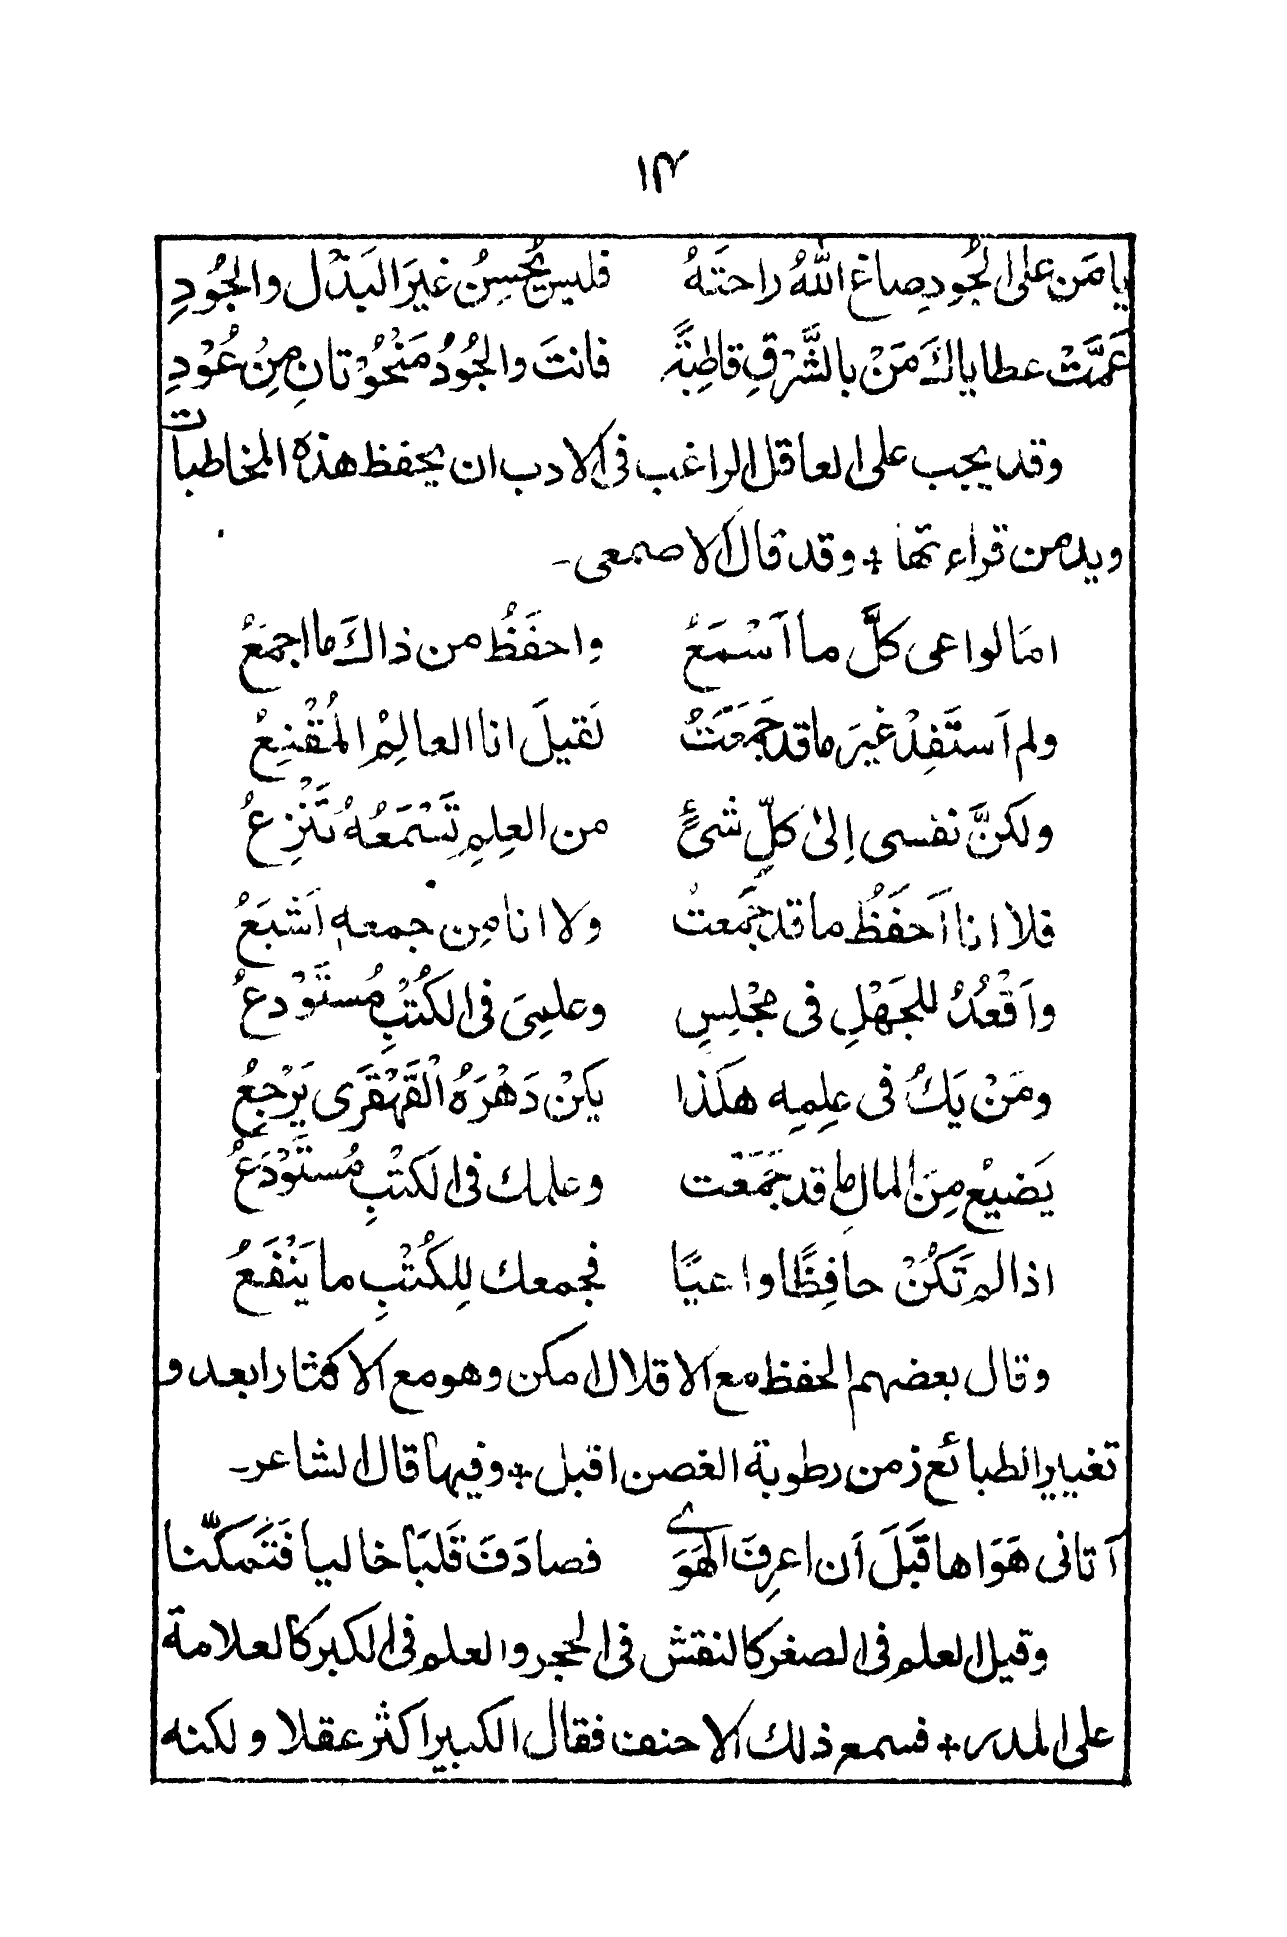 ١٣
يا مَن على الجُودِ صاغ اللهُ راحتَهُ فليس يُحسِنُ غيرَ البَذْل والجُودِ
عَمَّتْ عطاياكَ مَنْ بالشَّرْقِ قاطِبَةً فانتَ والجُودُ مَنْحُوْتانِ مِنْ عُوْدِ
وقد يجب على العاقل الراغب فى الادب ان يحفظ هذه المخاطبات
ويدمن قراءتها + وقد قال الاصمعى -
امَا لو اعى كلَّ ما اَسْمَعُ واحفَظُ من ذاكَ ما اجمَعُ
ولم اَستَفِدْ غيرَ ما قد جَمَعَتُ لَقيلَ انا العالِمُ المُقْنِعُ
ولكنَّ نفسى اِلىٰ كلِّ شئٍ من العِلمِ تَسْمَعُهُ تَنْزِعُ
فلا انا اَحفَظُ ما قد جَمَعتُ ولا انا مِن جمعه اَشبَعُ
واَقْعُدُ للجَهْلِ فى مجْلِسِ وعلمِىَ فى الكُتْبِ مُستَوْدعُ
ومَنْ يَكُ فى عِلمِه هكَذا يكنْ دَهْرَهُ الْقَهْقَرَى يَرْجِعُ
يَضيْعُ مِنَ المالِ ما قد جَمَعَْت وعلمك فى الكتْبِ مُستَوْدَعُ
اذا لم تَكُنْ حافِظًا واعيًا فجمعك لِلكُتْبِ ما يَنْفَعُ
وقال بعضهم الحفظ مع الاقلال امكن وهو مع الاكثار ابعد و
تغيير الطبائع زمن رطوبة الغصن اقبل + وفيها قال الشاعر -
اَتانى هَوَاها قَبَلَ أن اعرِفَ الهَوَى فصادَفَ قَلبًا خاليا فَتَمكّنا
وقيل العلم فى الصغر كالنقش فى الحجر والعلم فى الكبر كالعلامة
على المدر + فسمع ذلك الاحنف فقال الكبير اكثر عقلا ولكنه